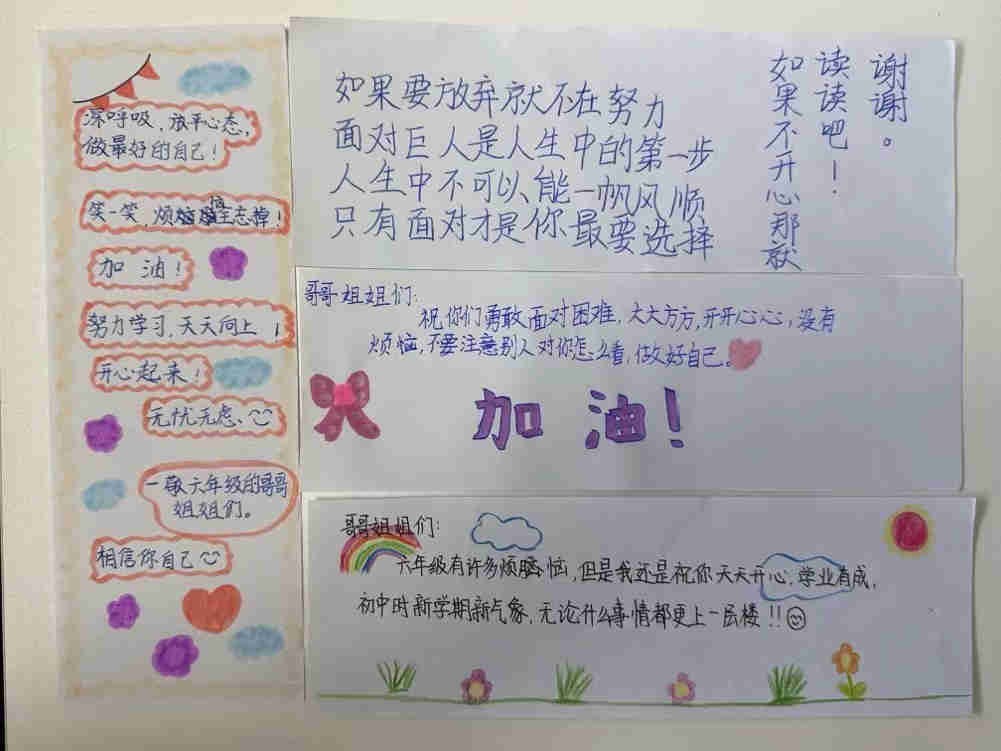 深呼吸，放平心态，
做最好的自己！
笑一笑，烦恼全忘掉！
加 油！
努力学习，天天向上！
开心起来！
无忧无虑、
一致六年级的哥哥
姐姐们。
相信你自己
如果要放弃就不在努力
面对巨人是人生中的第一步
人生中不可以、能一帆风顺
只有面对才是你最要选择
谢谢。
读读吧！
如果不开心那就
哥哥姐姐们：
祝你们勇敢面对困难，大大方方，开开心心，没有
烦恼，不要注意别人对你怎么看，做好自己。
加 油！
哥哥姐姐们：
六年级有许多烦恼，但是我还是祝你天天开心，学业有成，
初中时新学期新气象，无论什么事情都更上一层楼！！